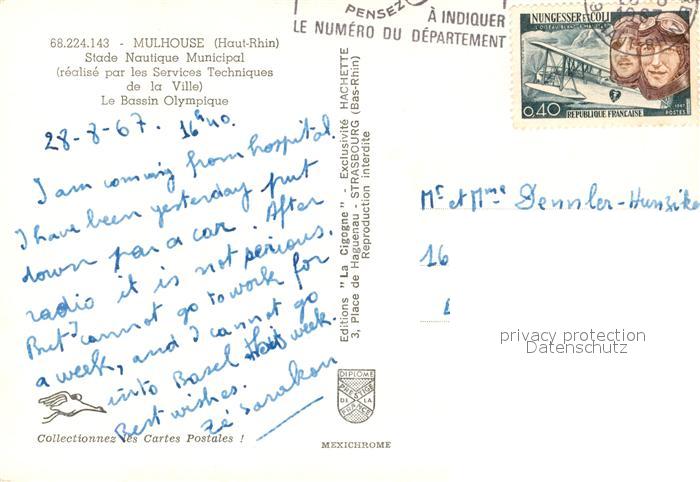 68.224.143 - MULHOUSE (Haut-Rhin)
Stade Nautique Municipal
(réalisé par les Services Techniques
de la Ville)
Le Bassin Olympique
28-8-67. 16h40.
I am coming from hospital.
I have been yesterday put
down par a car. After
radio it is not serious.
But I cannot go to work for
a week, and I cannot go
into Basel this week.
Best wishes.
Zé
Collectionnez les Cartes Postales !
Editions "La Cigogne" - Exclusivité HACHETTE
3, Place de Haguenau - STRASBOURG (Bas-Rhin)
Reproduction interdite
DIPLOME
PRESTIGE
DE LA
FRANCE
MEXICHROME
PENSEZ
À INDIQUER
LE NUMÉRO DU DÉPARTEMENT
NUNGESSER ET COLI
L'OISEAU BLANC
1967
POSTES
0,40 RÉPUBLIQUE FRANÇAISE
Mr et Mme Dennler-Hunzike
16
privacy protection
Datenschutz